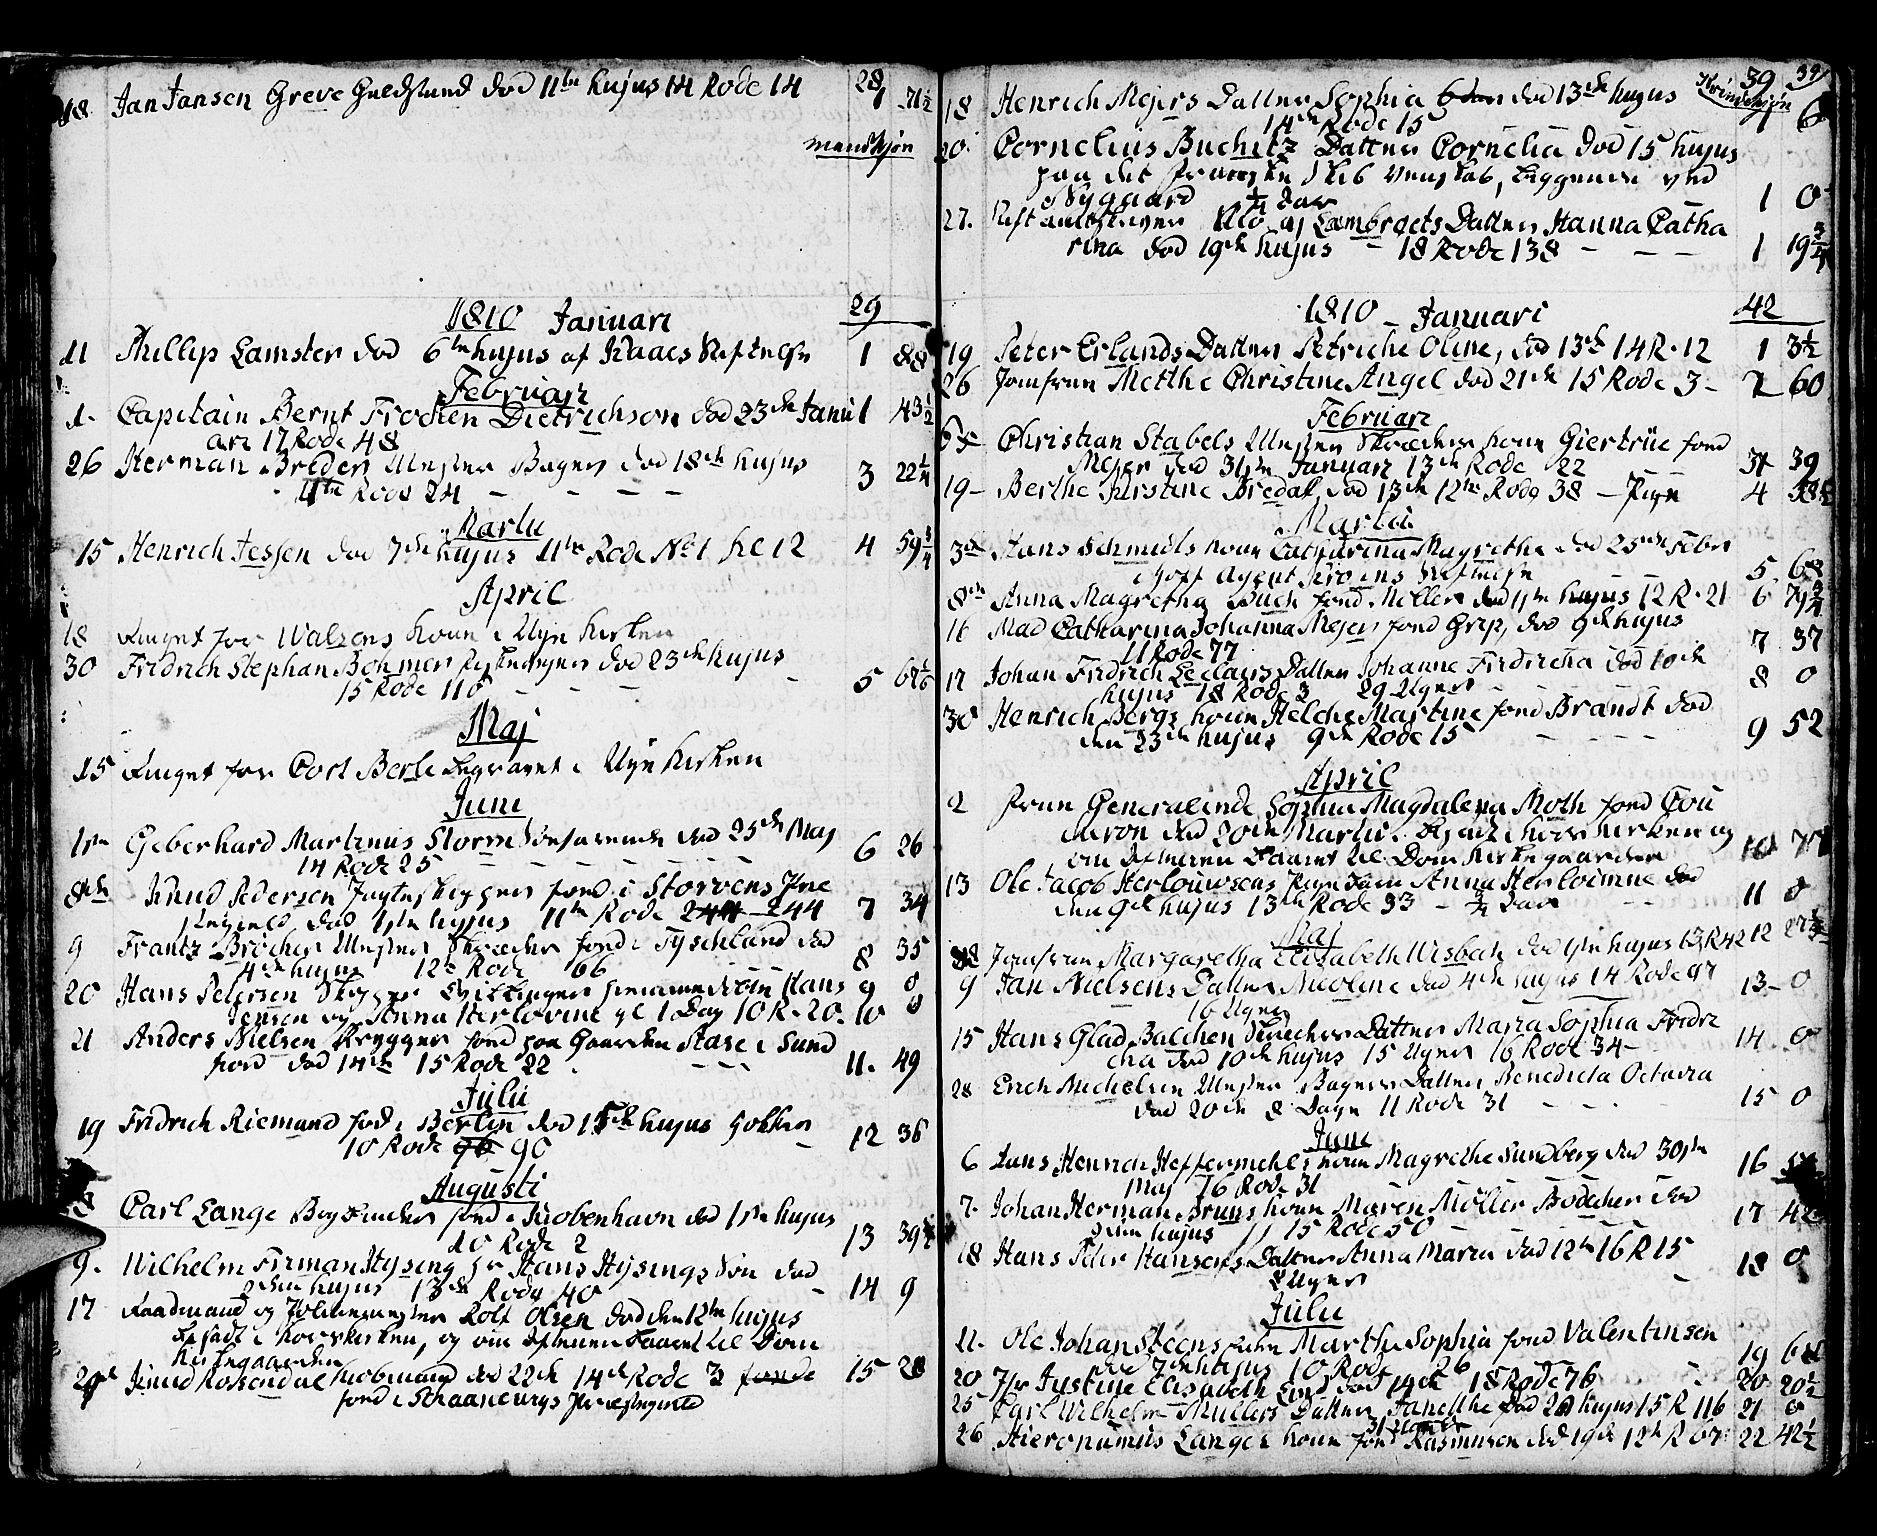 28
18 Jan Jansen Greve Guldsmed død 11te hujus 14 Rode 14 1 71½
mandkjøn
1810 Januari 29
11 Phillip Lamster død 6te hujus af Isaacs 1 88
Februari
1. Capitain Bernt Frochen Dietrichson død 23de Janu 1 43½
ari 17 Rode 48
26 Herman Breder Mester Bager død 18de hujus 3 22¼
11te Rode 24
Martii
15 Henrich Jessen død 7de hujus 11te Rode No 1 4 59¾
April
18 Ringet for Walsens kone i Nye Kirken
30 Fridrich Stephan Bohmer død 23de hujus
15 Rode 116 5
Maj
15 Ringet for Cort Berle begravet i Nye Kirken
Juni
1ste Geberhard Martinus Storm død 25de Maj
14 Rode 25 6 26
8de Knud Pedersen fød i Storvens Præ
død 1ste hujus 11te Rode 244 7 34
9 Frantz Bröcher Mester Skræder fød i Tyschland død
4de hujus 12te Rode 66 8 35
20 Hans Petersen Hans 9 0
Jensen og Anna Herlovine gl 1 Dag 10 R. 20. 10 0
21 Anders Nielsen Brygger fød paa Gaarden Stase i Sund
fiord død 14de 15 Rode 22 11. 49
Julii
19 Fridrich Riemand fød i Berlin død 15de hujus
10 Rode 90 12 36
Augusti
Carl Lange Bogbinder fød i Kiobenhavn død 1ste hujus
10 Rode 2 13 39½
9. Wilhelm Firman Hysing Hr Hans Hysings Søn død
hujus 13de Rode 40 14 9
17 Raadmand og Rolf Olsen død den 12te hujus
Besadt i Korskirken, og om Aftenen baaret til Dom
Kirkegaarden
Knud Rosendal Kiobmand død 22de 14de Rode 3 15 28
fød i Schaanevigs Præstegield
39 39
Qvindekjøn
18 Henrich Mejers Datter Sophia død 13de hujus 1 6
14de Rode 15
20. Cornelius Buchitz Datter Cornelia død 15 hujus
paa det Franske Skib Venskab, liggende ved
Nygaard ¼ Aar 1 0
27. Lambrects Datter Hanna Catha
rina død 19de hujus – 18 Rode 138 – – – 1 19¾
1810 Januari 42
19 Peter Erlands Datter Petriche Oline, død 13de 14 R. 12 1 3½
26 Jomfrue Metthe Christine Angel død 21de 15 Rode 3 – 2 60
Februari
Christian Stabels Mester Skræders kone Giertrüe fød
Mejer død 31te Januari 13de Rode 22 3 39
19 – Berthe Kirstine Bredal, død 13de 12te Rode 38 – Pige 4
Martii
3de Hans Schmidts kone Catharina Magrethe død 25de Febr
5 68
8de Anna Magretha Buch fød Möller død 1ste hujus 12 R. 21 6
16 Mad Catharina Johanna Mejer fød Grip, død 9de hujus
11 Rode 77 7 37
17 Johan Fridrich Leclairs Datter Johanne Fridricha død 10de
hujus 18 Rode 3 29 Uger 8 0
30 Henrich Bergs kone Helche Martine fød Brandt død
den 23de hujus 9de Rode 15 9 52
April
2 Frue Generalinde Sophia Magdalena Moth fød Cou
cheron død 20de Martii. Besadt i Korskirken og
om Aftenen baaret til Dom Kirkegaarden 10
13 Ole Jacob Herlouwsens Anna Herlovinne død
den 9de hujus 13de Rode 33 11 0
Maj
Jomfrue Margaretha Elizabeth Wisbech død 1ste hujus 13 R 42 12
9 Jan Nielsens Datter Nicoline død 4de hujus 14 Rode 97 13 – 0
16 Uger
15 Hans Glad Balchen Datter Maria Sophia Fridri
cha død 10de hujus 15 Uger 16 Rode 34 – 14. 0
28 Erich Michelsen Mester Bagers Datter Benedicta Octavia
død 20de 8 Dage 11 Rode 31 15 0
Juni
6 Hans Henrich Heffermehls kone Magrethe Sundberg død 30te
Maj 16 Rode 31 16
7. Johan Herman Bruns kone Maren Möller Bödcher død
hujus 15 Rode 50 17 42
18 Hans Peter Hansens Datter Anna Maria død 12te 16 R 15 18 0
Uger
Julii
11. Ole Johan Steens Marthe Sophia fød Valentinsen
død 7de hujus 10 Rode 26 19
20 Jfr Justine Elisabeth død 14de 18 Rode 76 20 20½
25 Carl Wilhelm Müllers Datter Janetthe død hujus 15 R 116 21 0
26 Hieronumus Langes kone fød Rasmusen død 19de 12te R 67 22 42½